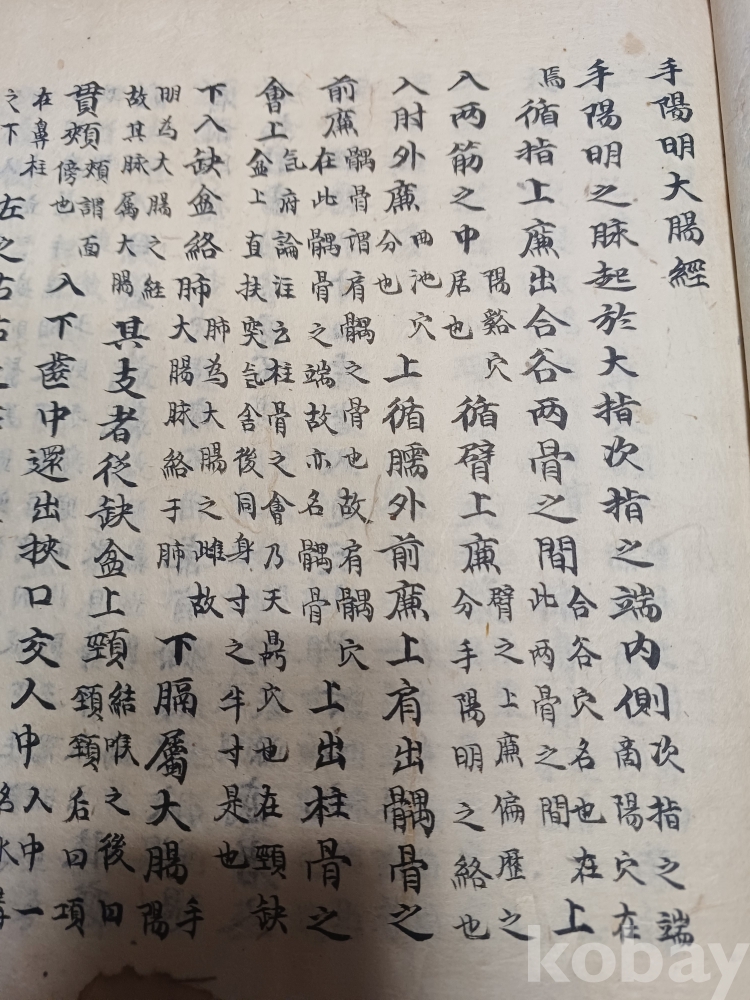 手陽明大腸經
手陽明之脉起於大指次指之端内側次指之端商陽穴在
焉循指上廉出合谷两骨之間合谷穴名也在此两骨之間上
入两筋之中陽谿穴居也循臂上廉臂之上廉偏歷之分手陽明之絡也
入肘外廉曲池穴分也上循臑外前廉上肩出髃骨之
前廉髃骨謂肩髃之骨也故肩髃穴在此髃骨之端故亦名髃骨上出柱骨之
會上气府論注云柱骨之會乃天鼎穴也在頸缺盆上直扶突气舍後同身寸之半寸是也
下入缺盆絡肺肺為大腸之雌故大腸脉絡于肺下膈屬大腸手陽
明為大腸之経故其脉属大腸其支者従缺盆上頸結喉之後曰頸頸后曰項
貫頬頬謂面傍也入下齒中還出挾口交人中人中一名水溝
在鼻柱之下左之右右之